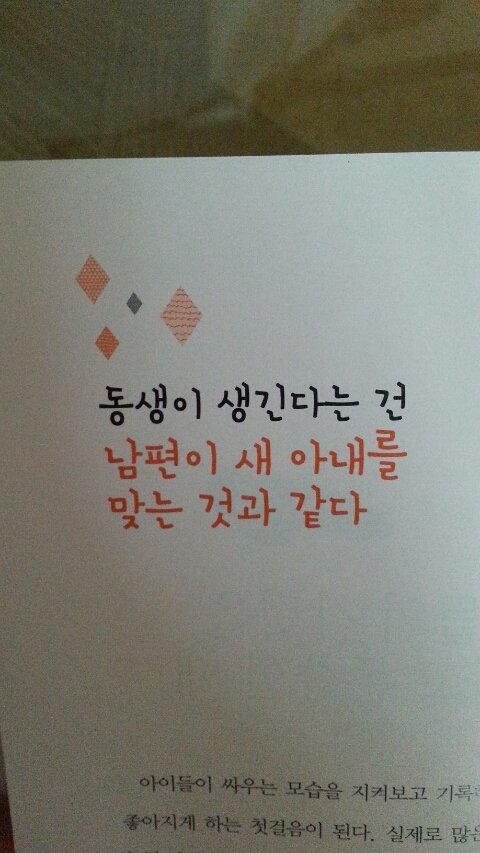 동생이 생긴다는 건
남편이 새 아내를
맞는 것과 같다
아이들이 싸우는 모습을 지켜보고 기록
좋아지게 하는 첫걸음이 된다. 실제로 많은